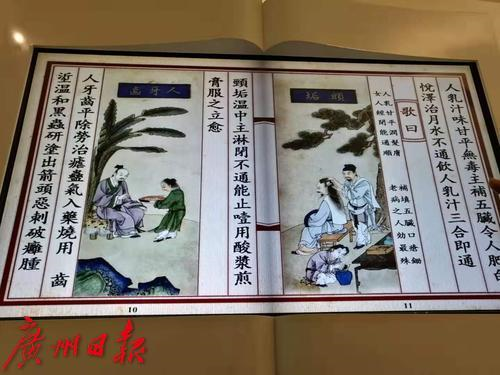 人乳汁味甘平無毒主補五臟令人肥白
悅澤治月水不通飲人乳汁三合即通
歌曰
人乳甘平潤髮膚 補填五臟口瘡鋤
女人經閉能通順 老病之人効最殊
頭垢
11
頭垢溫中主淋閉不通能止噎用酸漿煎
膏服之立愈
人牙齒
人牙齒平除勞治瘧蠱氣入藥燒用 齒
垽溫和黑蟲研塗出箭頭惡刺破癰腫
10
廣州日報